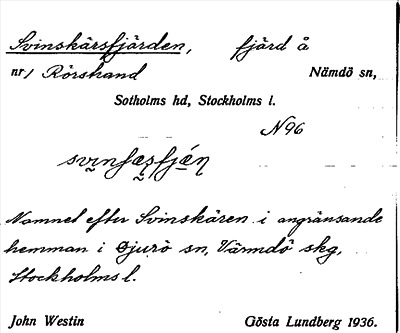 Svinskärsfjärden, fjärd å
nr 1 Rörstrand Nämdö sn,
Sotholms hd, Stockholms l.
N96
svinʃæsfjän
Namnet efter Svinskären i angränsande
hemman i Djurö sn, Värmdö skg,
Stockholms l.
John Westin Gösta Lundberg 1936.